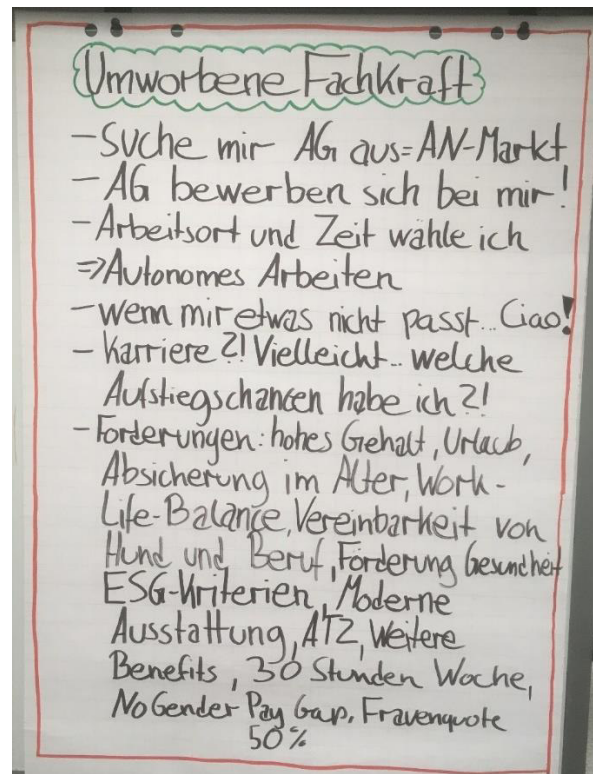 Umworbene Fachkraft
- Suche mir AG aus = AN-Markt
- AG bewerben sich bei mir!
- Arbeitsort und Zeit wähle ich
=> Autonomes Arbeiten
- wenn mir etwas nicht passt... Ciao!
- Karriere?! Vielleicht.. welche
Aufstiegschancen habe ich?!
- Forderungen: hohes Gehalt, Urlaub,
Absicherung im Alter, Work-
Life-Balance, Vereinbarkeit von
Hund und Beruf, Förderung Gesundheit
ESG-Kriterien, Moderne
Ausstattung, ATZ, Weitere
Benefits, 30 Stunden Woche,
No Gender Pay Gap, Frauenquote
50%